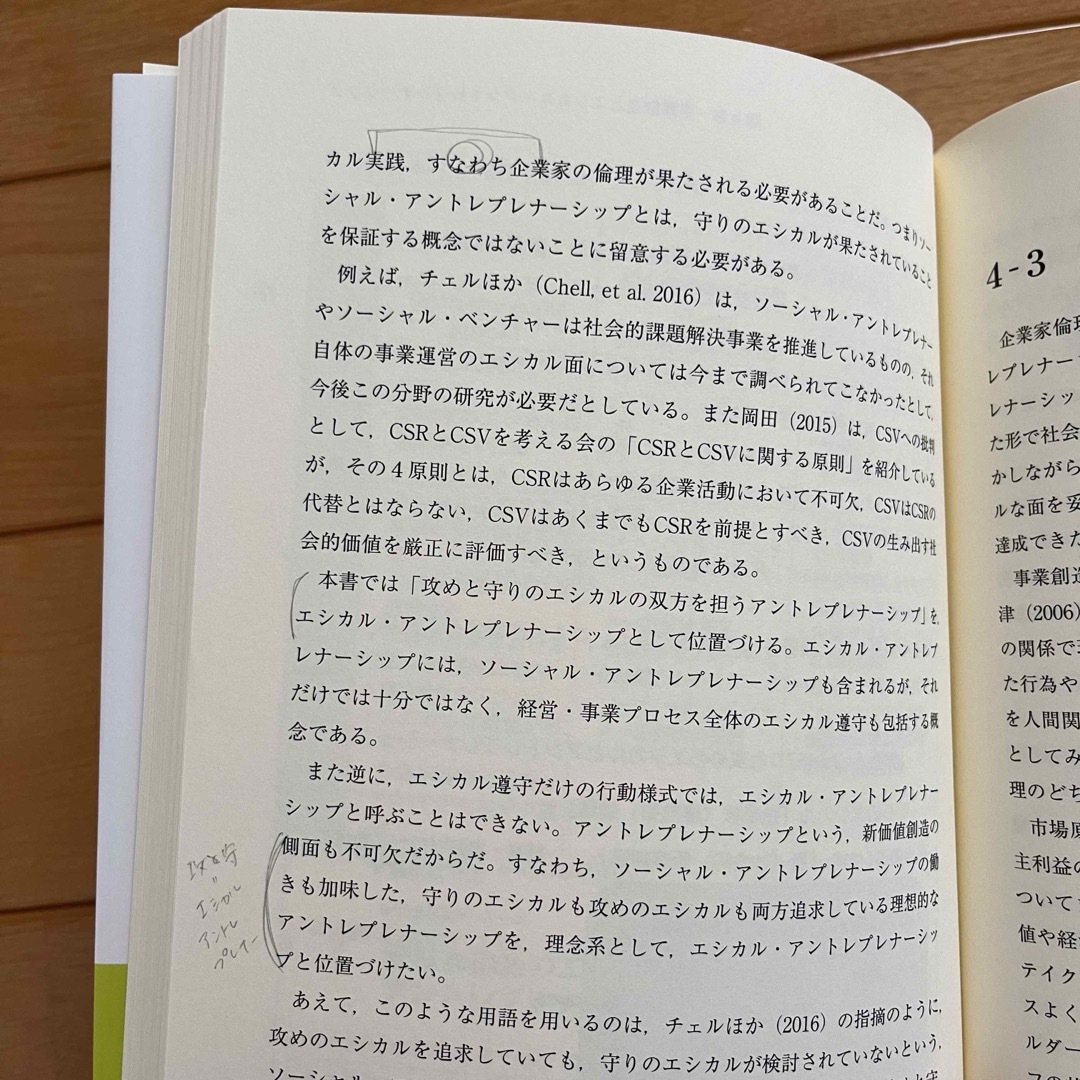 カル実践，すなわち企業家の倫理が果たされる必要があることだ。つまりソー
シャル・アントレプレナーシップとは，守りのエシカルが果たされていること
を保証する概念ではないことに留意する必要がある。
例えば，チェルほか（Chell, et al. 2016）は，ソーシャル・アントレプレナー
やソーシャル・ベンチャーは社会的課題解決事業を推進しているものの，それ
自体の事業運営のエシカル面については今まで調べられてこなかったとして，
今後この分野の研究が必要だとしている。また岡田（2015）は，CSVへの批判
として，CSRとCSVを考える会の「CSRとCSVに関する原則」を紹介している
が，その４原則とは，CSRはあらゆる企業活動において不可欠，CSVはCSRの
代替とはならない，CSVはあくまでもCSRを前提とすべき，CSVの生み出す社
会的価値を厳正に評価すべき，というものである。
本書では「攻めと守りのエシカルの双方を担うアントレプレナーシップ」を，
エシカル・アントレプレナーシップとして位置づける。エシカル・アントレプ
レナーシップには，ソーシャル・アントレプレナーシップも含まれるが，それ
だけでは十分ではなく，経営・事業プロセス全体のエシカル遵守も包括する概
念である。
また逆に，エシカル遵守だけの行動様式では，エシカル・アントレプレナー
シップと呼ぶことはできない。アントレプレナーシップという，新価値創造の
側面も不可欠だからだ。すなわち，ソーシャル・アントレプレナーシップの働
きも加味した，守りのエシカルも攻めのエシカルも両方追求している理想的な
アントレプレナーシップを，理念系として，エシカル・アントレプレナーシッ
プと位置づけたい。
あえて，このような用語を用いるのは，チェルほか（2016）の指摘のように，
攻めのエシカルを追求していても，守りのエシカルが検討されていないという，
攻と守
〃
エシカル
アントレ
プレナー
4-3
企業家倫理
レプレナー
レナーシッ
た形で社会
かしながら
ルな面を妥
達成できた
事業創造
津（2006）
の関係で
た行為や
を人間関
としてみ
理のどち
市場原
主利益の
ついて
値や経
テイク
スよく
ルダー